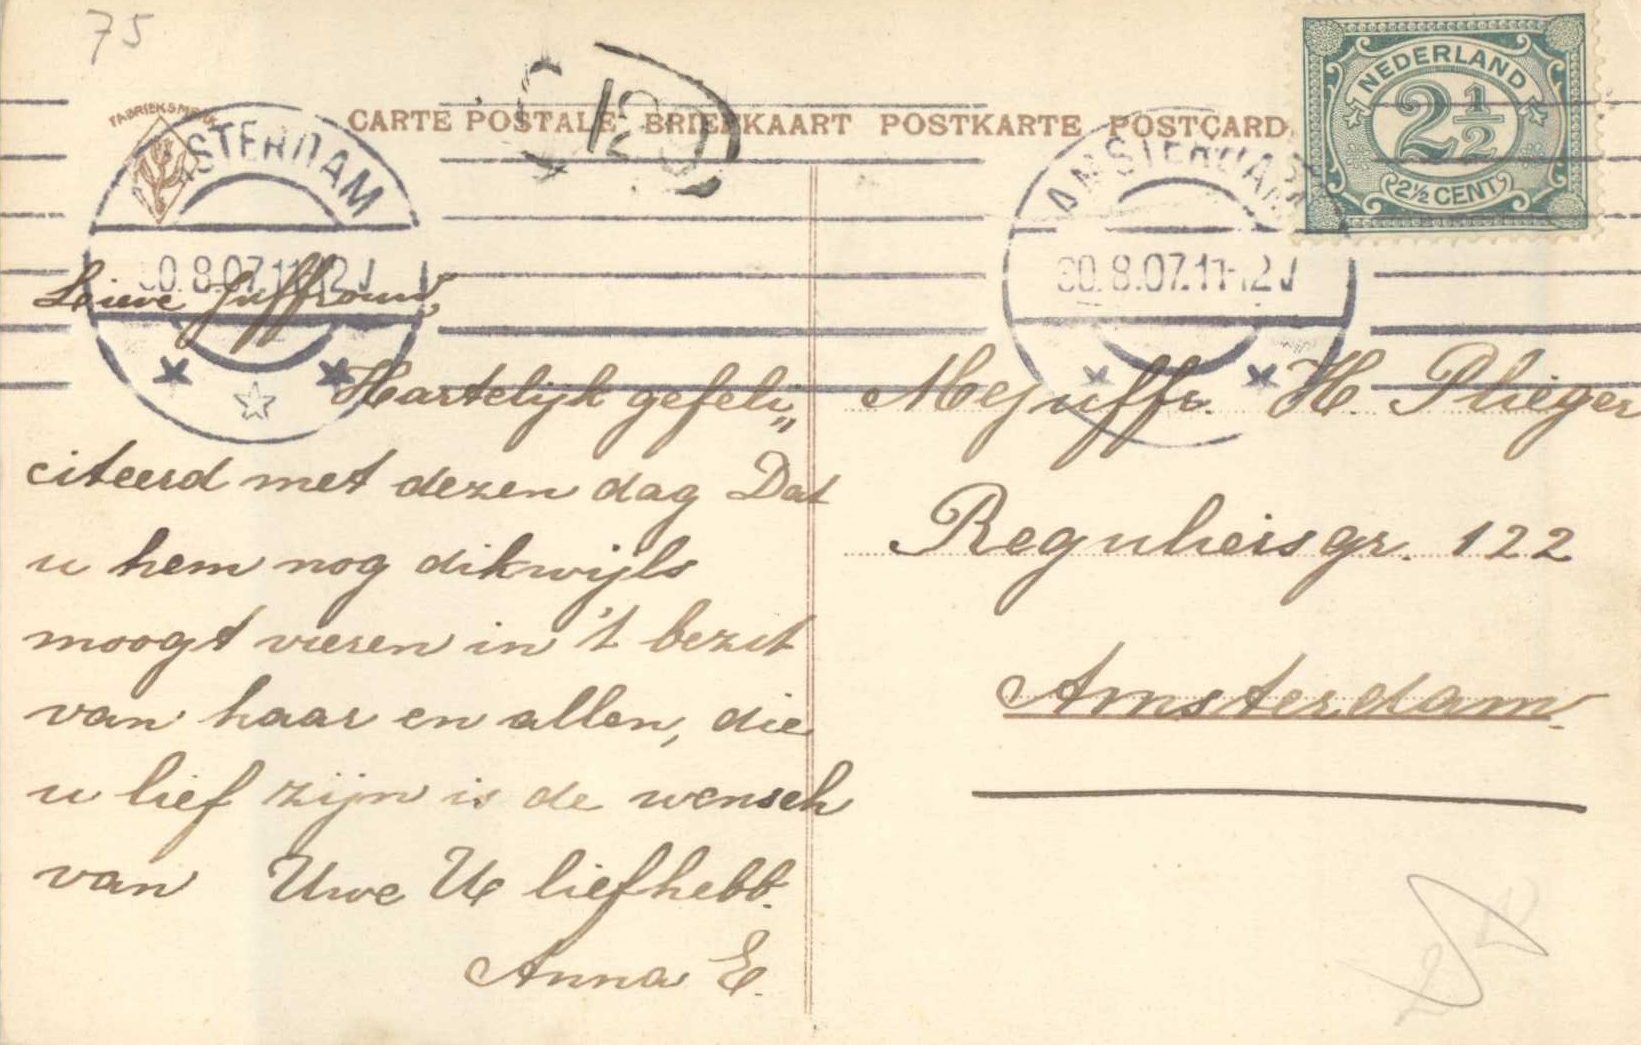 75
FABRIEKSMERK
CARTE POSTALE BRIEFKAART POSTKARTE POSTCARD
NEDERLAND
2½
2½ CENT
AMSTERDAM
30.8.07.11-12 V
AMSTERDAM
30.8.07.11-12 V
Lieve Juffrouw,
Hartelijk gefeli„
citeerd met dezen dag Dat
u hem nog dikwijls
moogt vieren in 't bezit
van haar en allen, die
u lief zijn is de wensch
van Uwe U liefhebb.
Anna E.
Mejuffr. H. Plieger
Reguliersgr. 122
Amsterdam